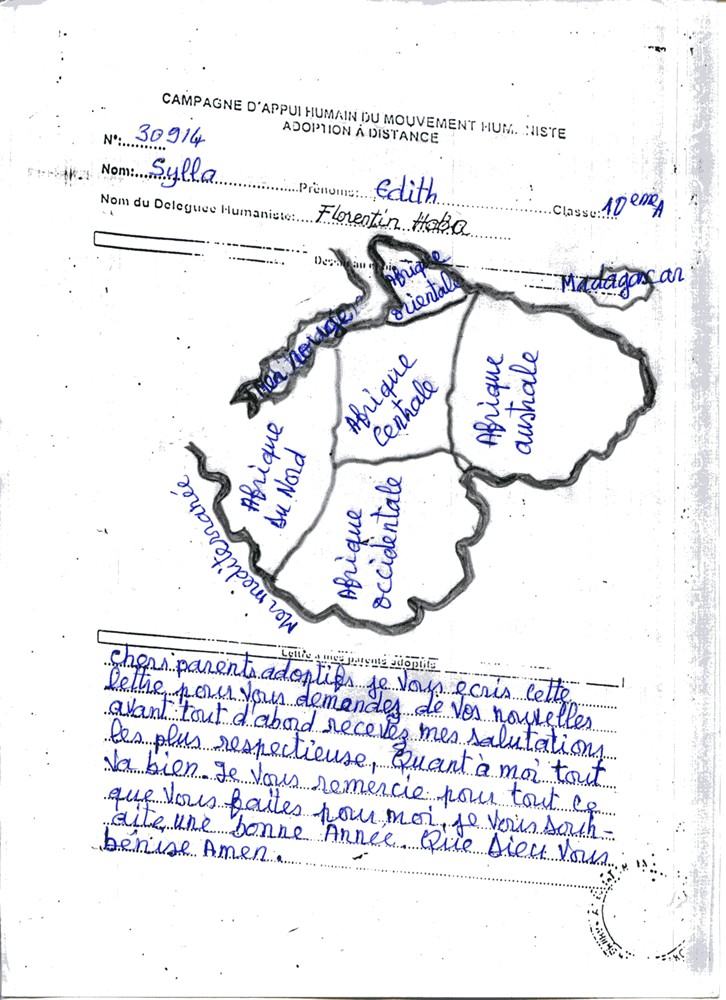 CAMPAGNE D'APPUI HUMAIN DU MOUVEMENT HUM. NISTE
ADOPTION À DISTANCE
N°:..........30914
Nom:....Sylla....Prénoms:....Edith....Classe:..10ème A
Nom du Deleguee Humaniste:....Florentin Haba
Madagascar
Afrique
orientale
Mer Rouge
Afrique
Centrale
Afrique
australe
Afrique
du Nord
Afrique
occidentale
Mer mediterranée
Lettre à mes parents adoptifs
chers parents adoptifs je vous ecris cette
lettre pour vous demandez de vos nouvelles
avant tout d'abord recevez mes salutations
les plus respectieuse, Quant à moi tout
va bien. Je vous remercie pour tout ce
que vous faites pour moi, je vous souh-
aite une bonne Année. Que Dieu vous
benise Amen.